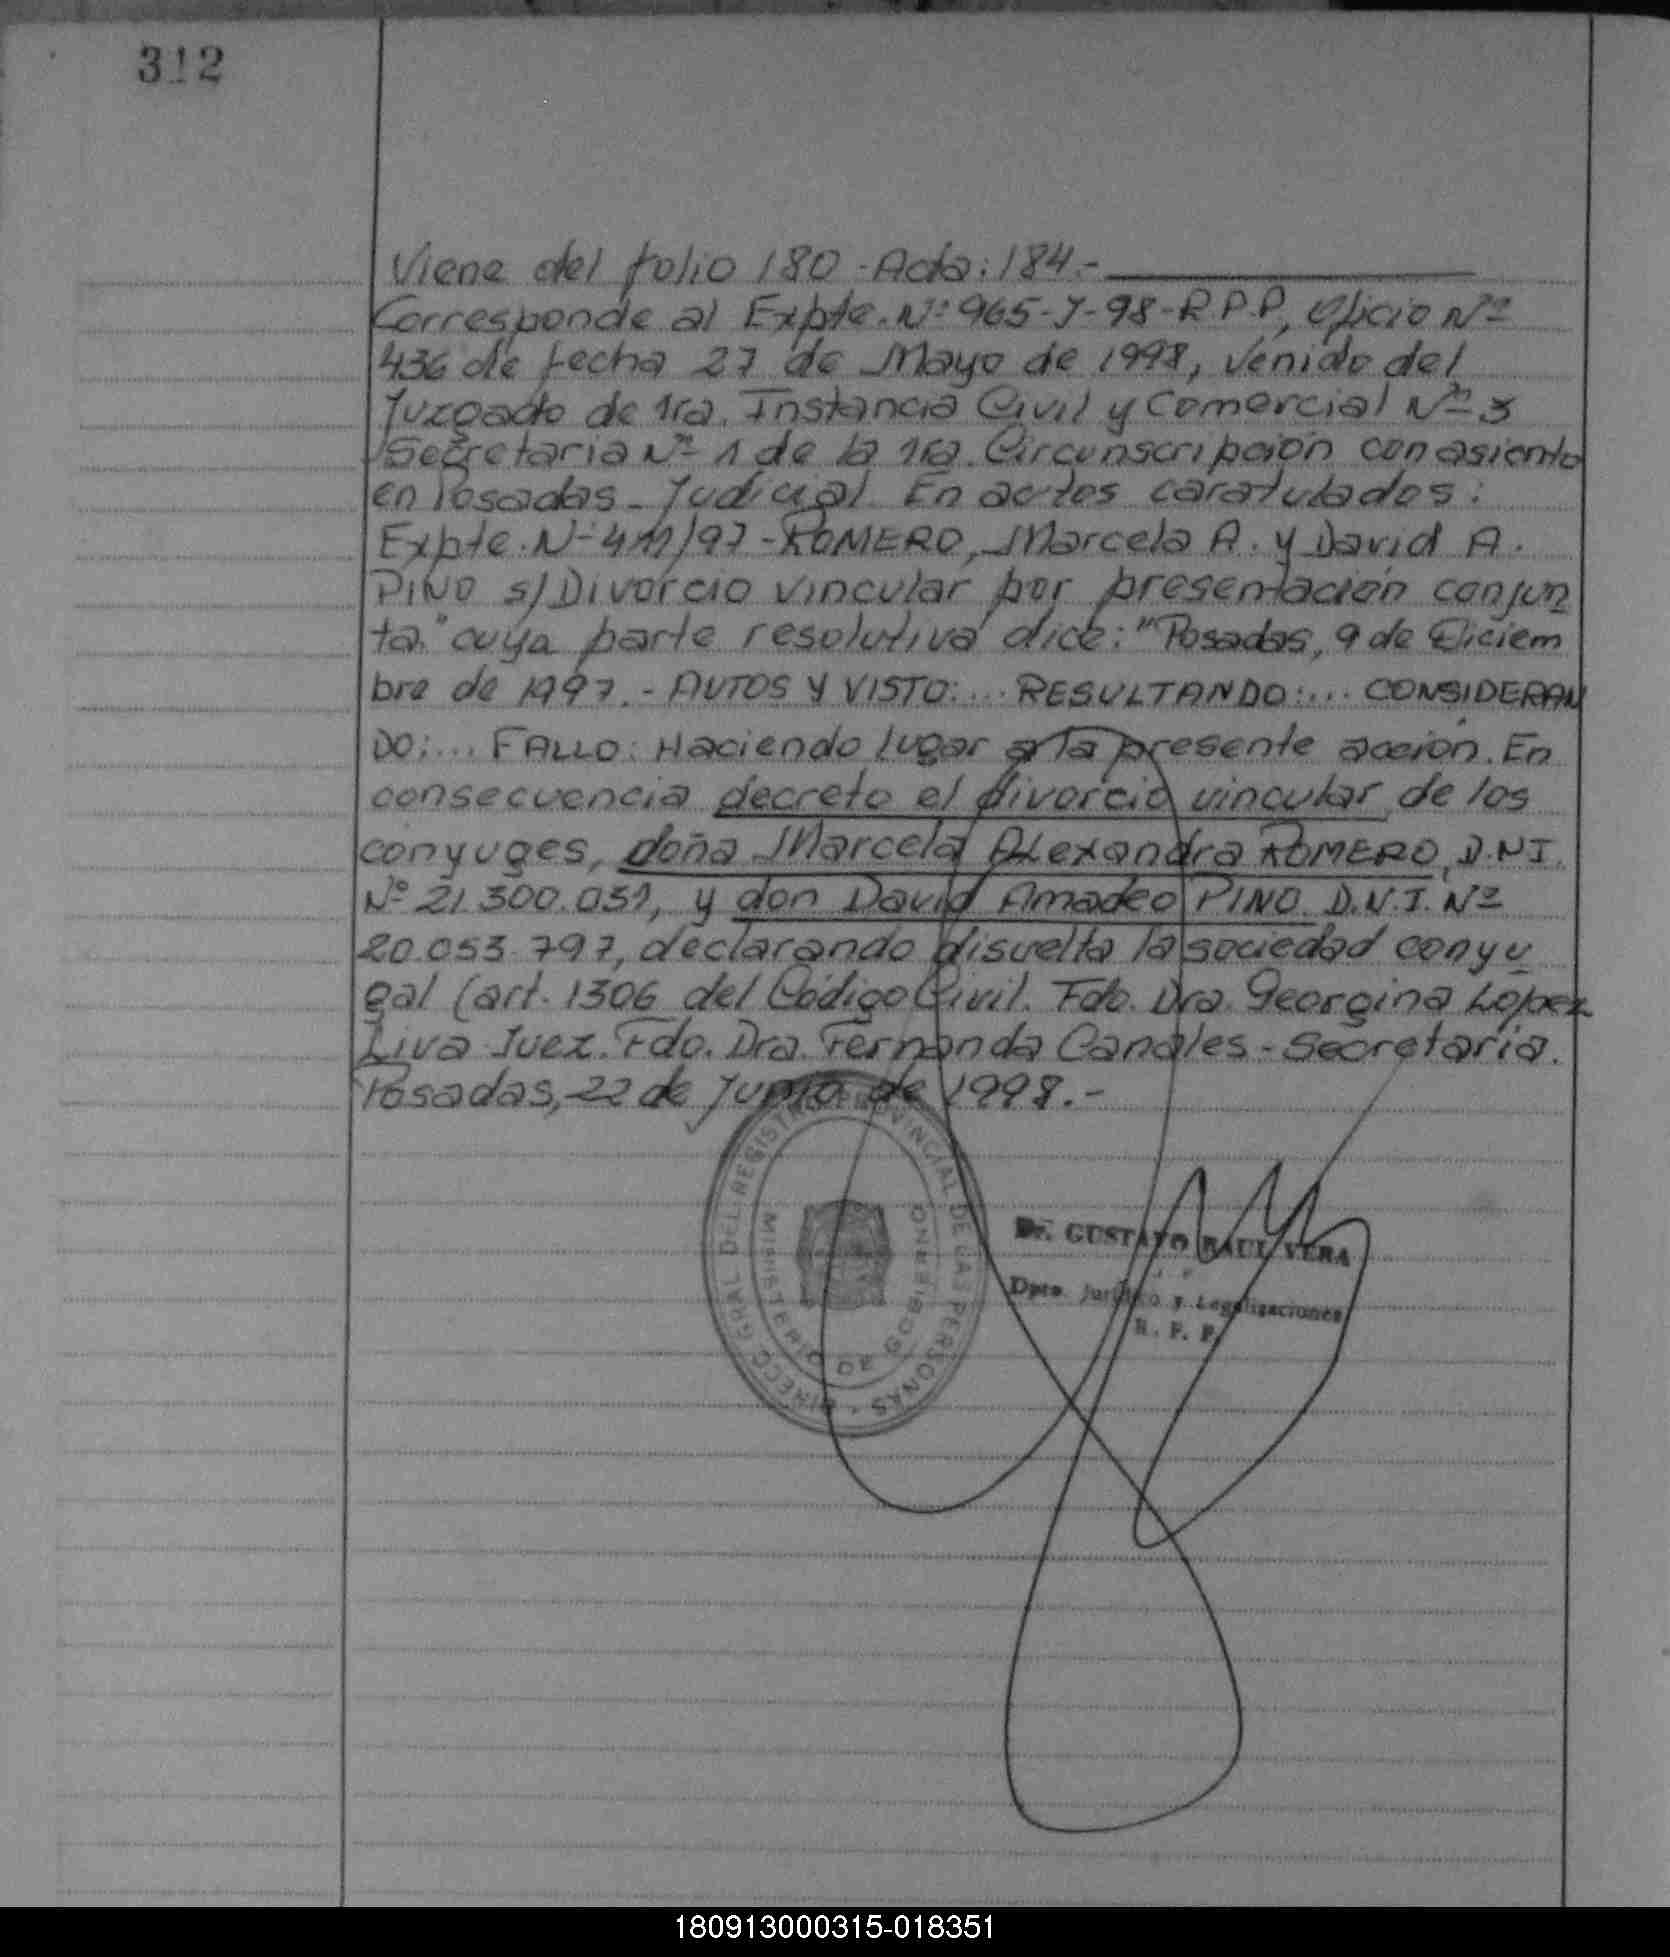 312
Viene del folio 180 - Acta: 184.-
Corresponde al Expte. Nº 965-J-98-R.P.P, Oficio Nº
436 de fecha 27 de Mayo de 1998, venido del
Juzgado de 1ra. Instancia Civil y Comercial Nº 3
Secretaria Nº 1 de la 1ra. Circunscripción con asiento
en Posadas - Judicial. En autos caratulados:
Expte. Nº 411/97 - ROMERO, Marcela A. y David A.
PINO s/ Divorcio vincular por presentación conjun
ta." cuya parte resolutiva dice: "Posadas, 9 de Diciem
bre de 1997.- AUTOS Y VISTO:... RESULTANDO:... CONSIDERAN
DO:... FALLO: Haciendo lugar a la presente acción. En
consecuencia decreto el divorcio vincular de los
conyuges, doña Marcela Alexandra ROMERO, D.N.I.
Nº 21.300.031, y don David Amadeo PINO. D.N.I. Nº
20.053.797, declarando disuelta la sociedad conyu
gal (art. 1306 del Código Civil. Fdo. Dra. Georgina Lopez
Liva Juez. Fdo. Dra. Fernanda Canales - Secretaria.
Posadas, 22 de Junio de 1998.-
DIRECC. GRAL. DEL REGISTRO PROVINCIAL DE LAS PERSONAS
MINISTERIO DE GOBIERNO
Dr. GUSTAVO RAUL VERA
Dpto. Jurídico y Legalizaciones
R. P. P.
180913000315-018351